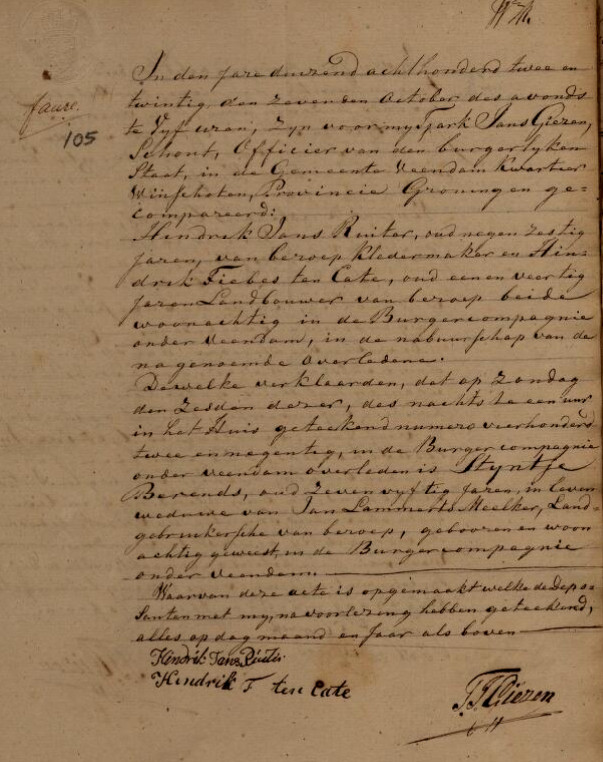 In den jare duizend achthonderd twee en
twintig, den zevenden October des avonds
faure.
105
te Vyf uren, zyn voor my Tjark Jans Giezen,
Schout, Officier van den burgerlyken
Staat, in de Gemeente Veendam Kwartier
Winschoten, Provincie Groningen ge=
compareerd:
Hendrik Jans Ruiter, oud negen zestig
jaren, van beroep kledermaker en Hin=
drik Fiebes ten Cate, oud een en veertig
jaren Landbouwer van beroep beide
woonachtig in de Burgercompagnie
onder Veendam, in de nabuurschap van de
nagenoemde Overledene.
Dewelke verklaarden, dat op Zondag
den Zesden dezer, des nachts te een uur
in het Huis geteekend numero vierhonderd
twee en negentig, in de Burgercompagnie
onder Veendam overleden is Styntje
Berends, oud zeven vyftig jaren, in leven
weduwe van Jan Lammerts Meelker, Land=
gebruikersche van beroep, gebooren en woon
achtig geweest, in de Burgercompagnie
onder Veendam.
Waarvan deze acte is opgemaakt welke de Depo=
santen met my, na voorlezing hebben geteekend,
alles op dag maand en Jaar als boven
Hindrik Jans Ruiter
Hendrik F ten Cate
T J Giezen